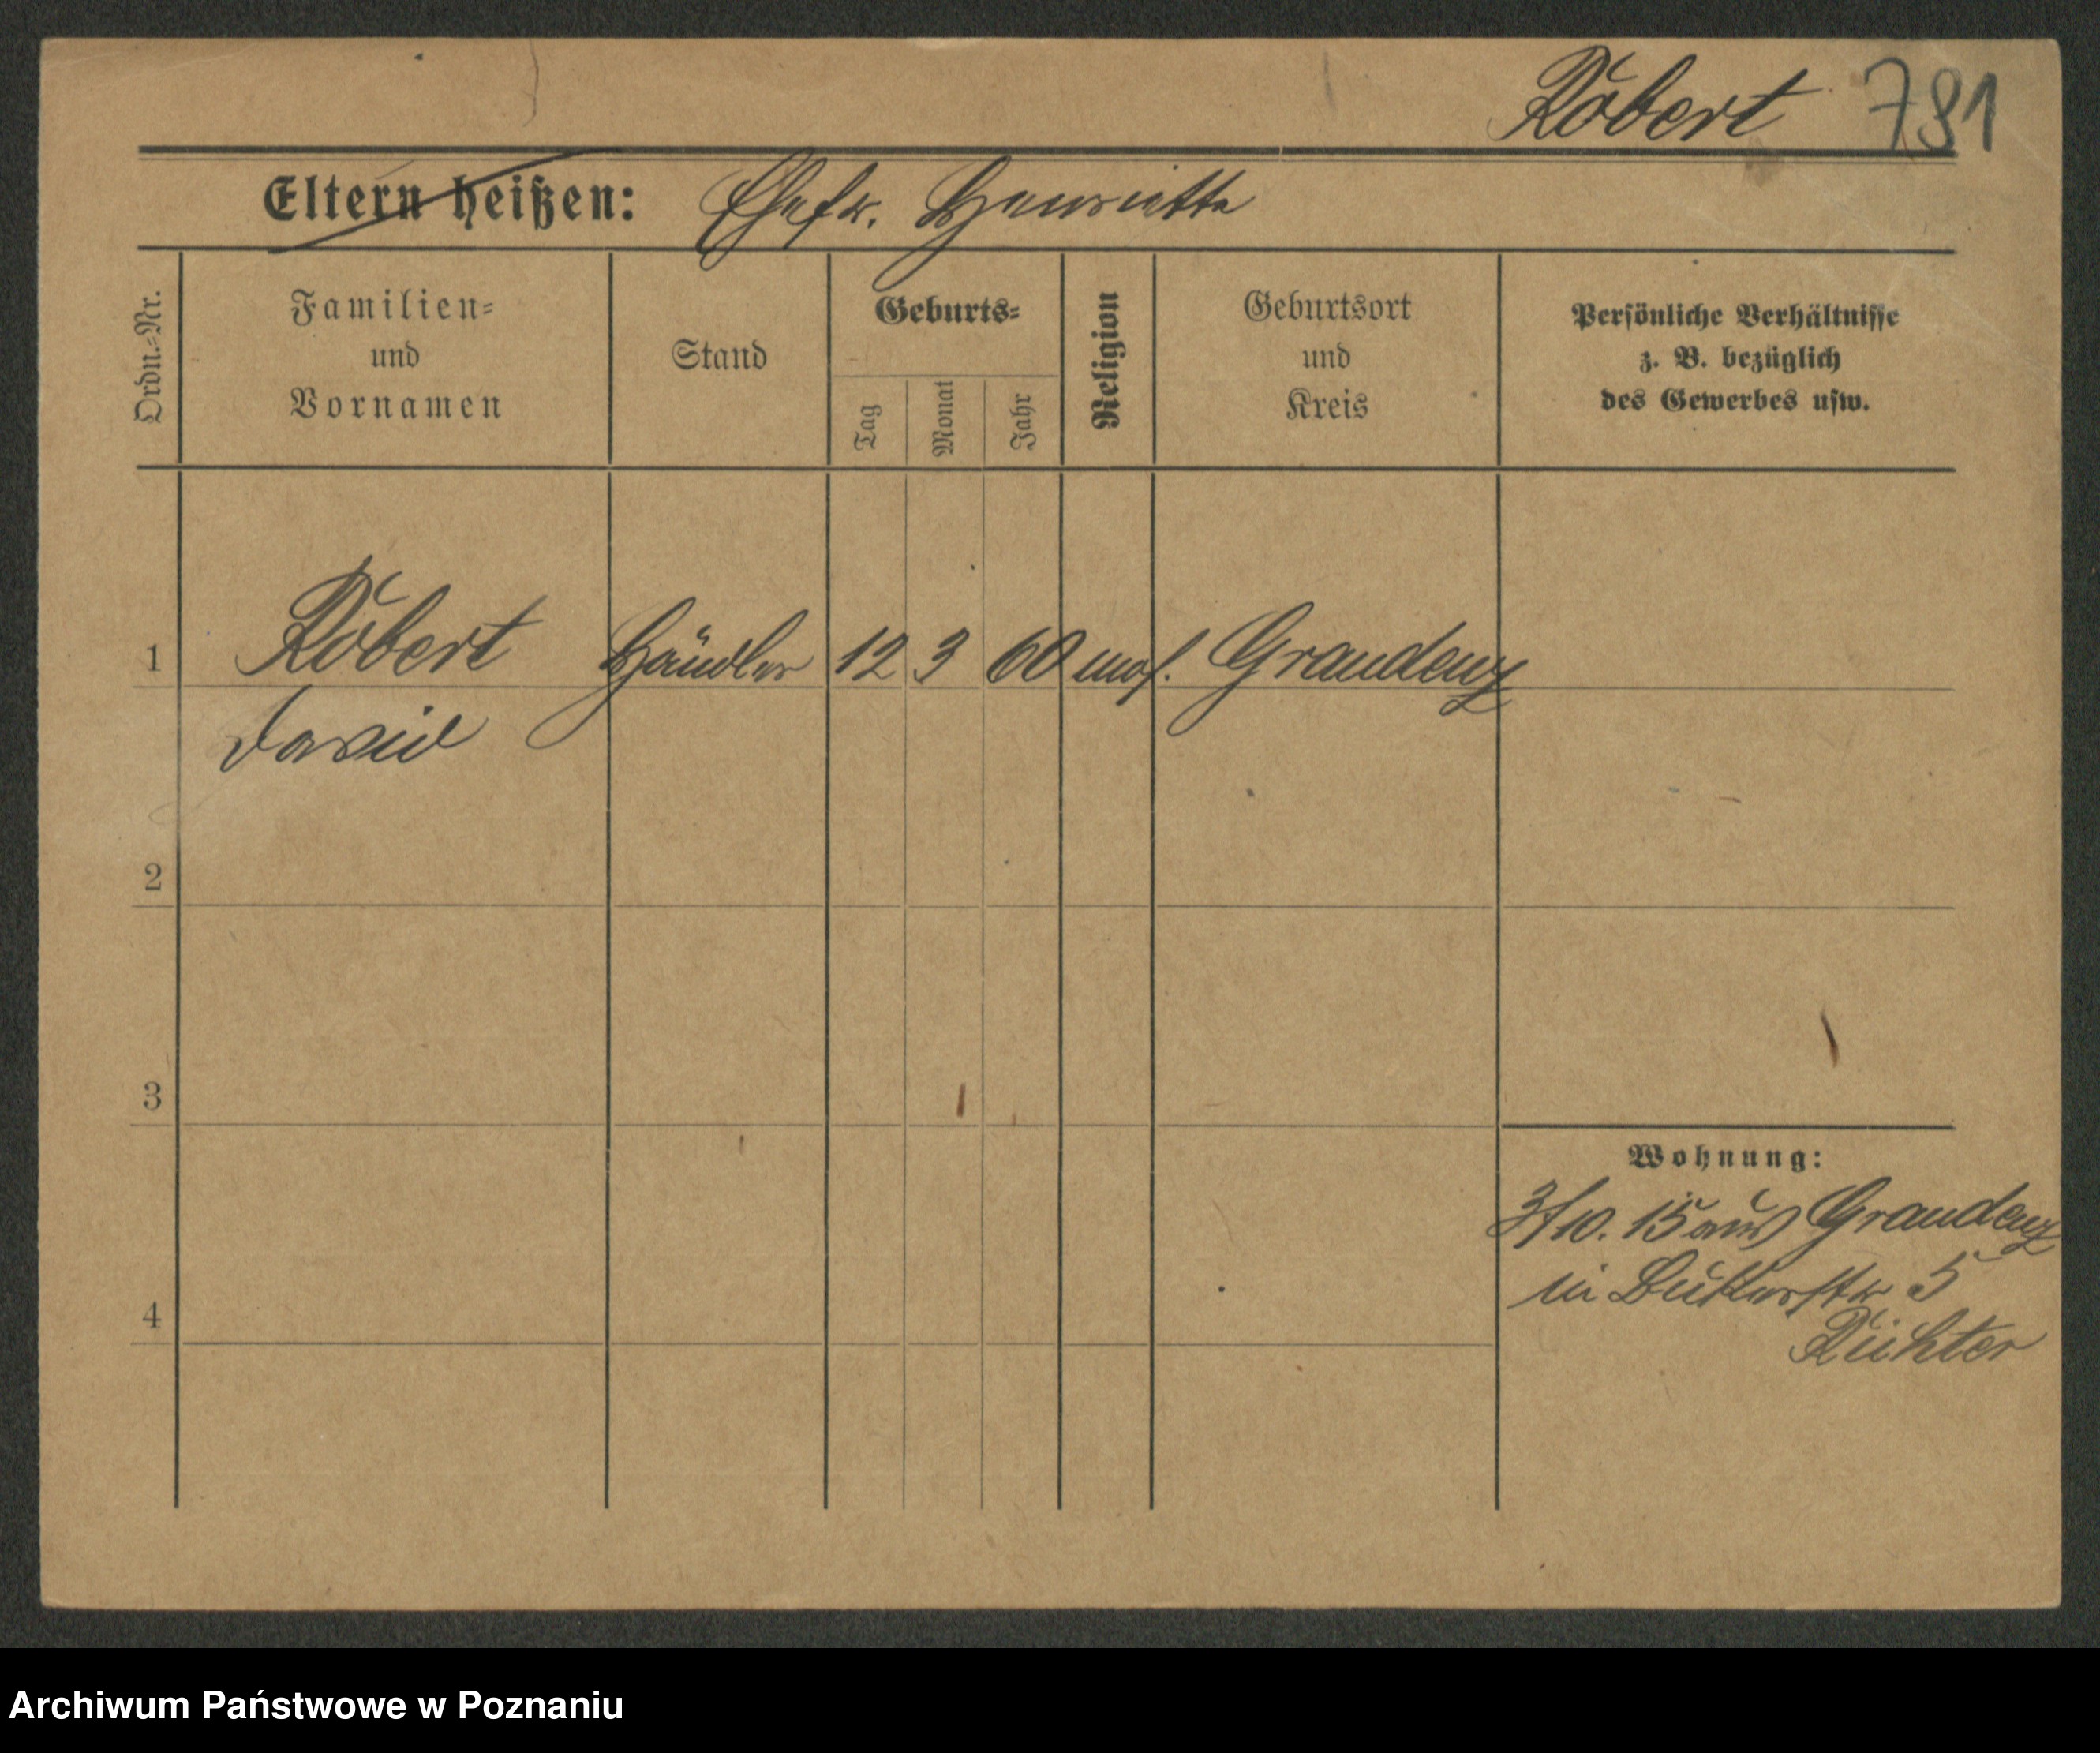 Röbert 781
Eltern heißen: Ehefr. Henriette
Ordn.-Nr.
Familien-
und
Vornamen
Stand
Geburts-
Tag
Monat
Jahr
Religion
Geburtsort
und
Kreis
Persönliche Verhältnisse
z. B. bezüglich
des Gewerbes usw.
1 Röbert Händler 12 3 60 mos. Graudenz
David
2
3
4
Wohnung:
3/10. 15 aus Graudenz
in Butlerstr 5
Richter
Archiwum Państwowe w Poznaniu